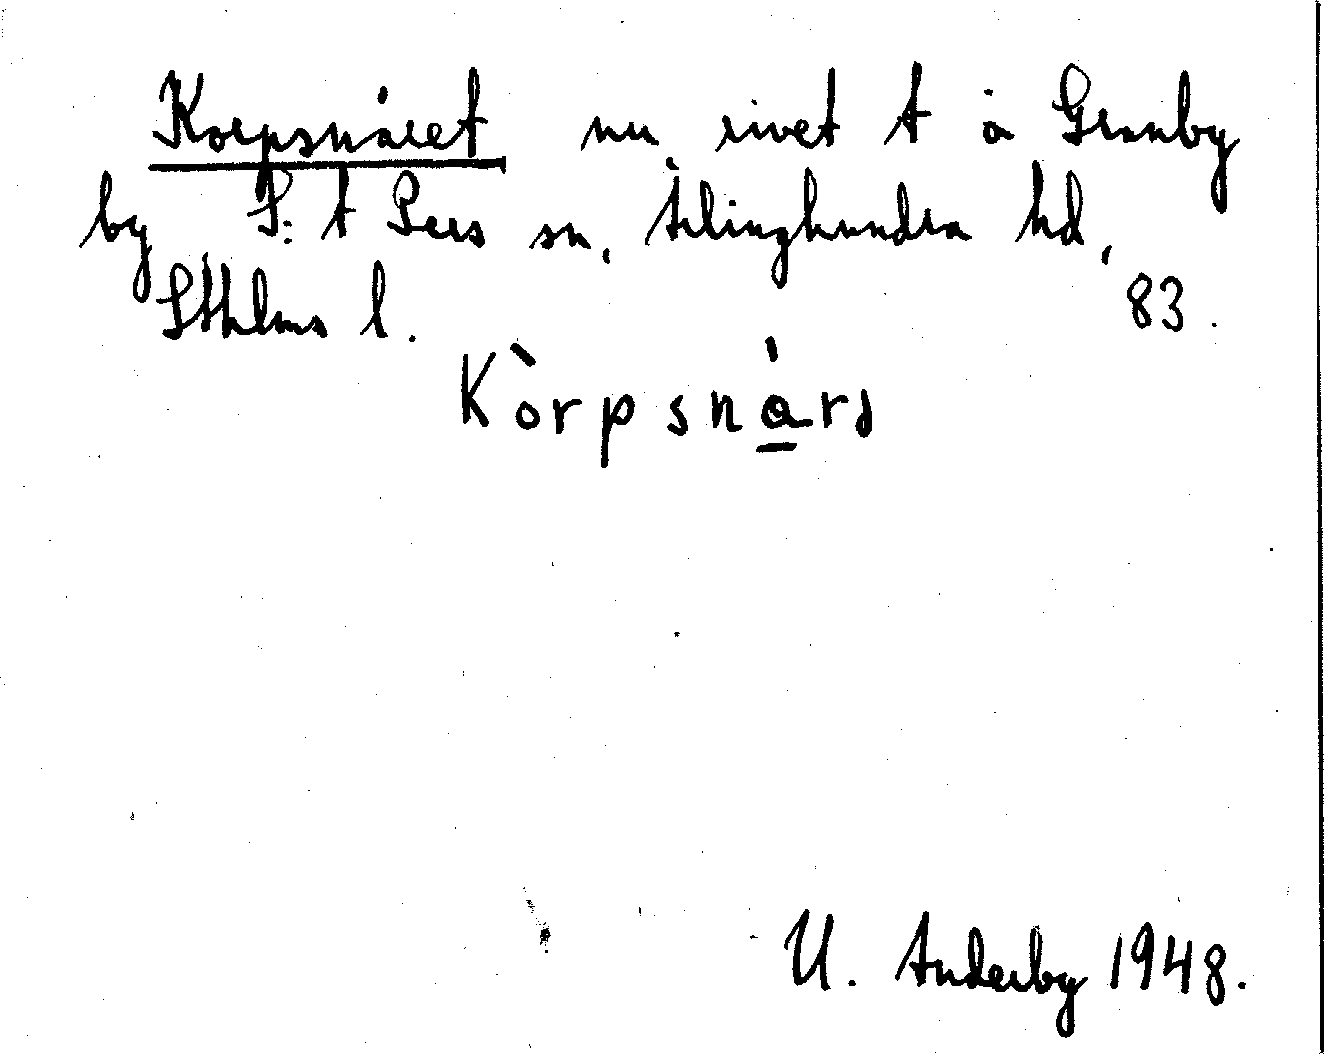 Korpsnåret nu rivet t å Granby
by S:t Pers sn, Ärlinghundra hd,
Sthlms l. 83.
Kòrpsnárə
U. Anderby 1948.